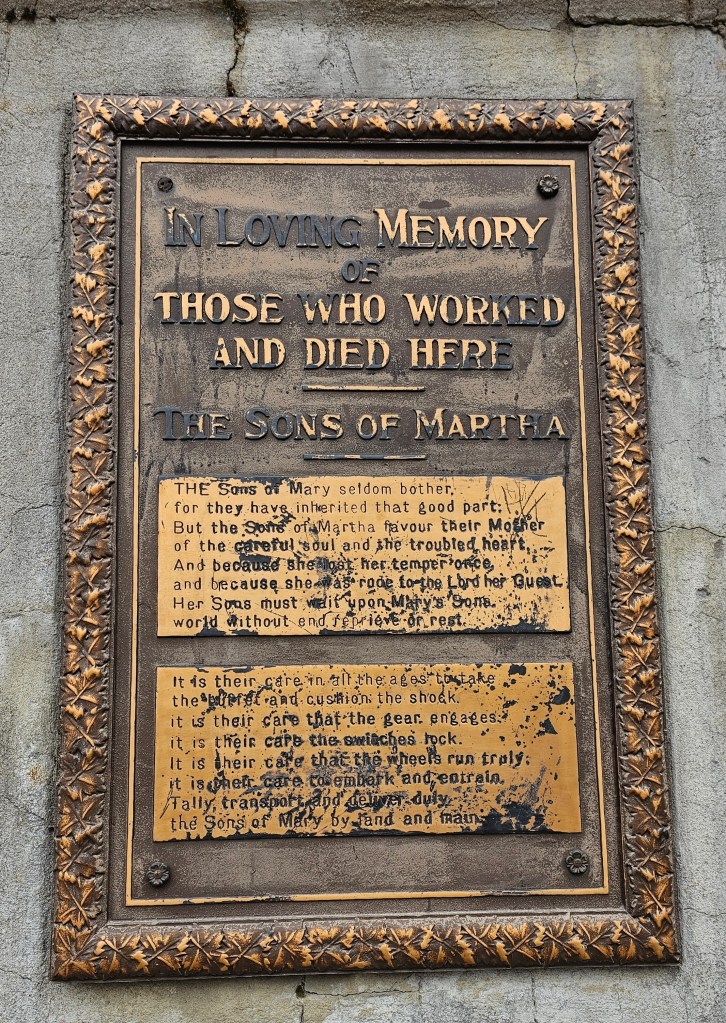 IN LOVING MEMORY
OF
THOSE WHO WORKED
AND DIED HERE
THE SONS OF MARTHA
THE Sons of Mary seldom bother,
for they have inherited that good part;
But the Sons of Martha favour their Mother
of the careful soul and the troubled heart.
And because she lost her temper once,
and because she was rude to the Lord her Guest,
Her Sons must wait upon Mary's Sons,
world without end reprieve or rest.
It is their care in all the ages to take
the buffet and cushion the shock.
it is their care that the gear engages;
it is their care the switches lock.
It is their care that the wheels run truly;
it is their care to embark and entrain,
Tally, transport, and deliver duly
the Sons of Mary by land and main.